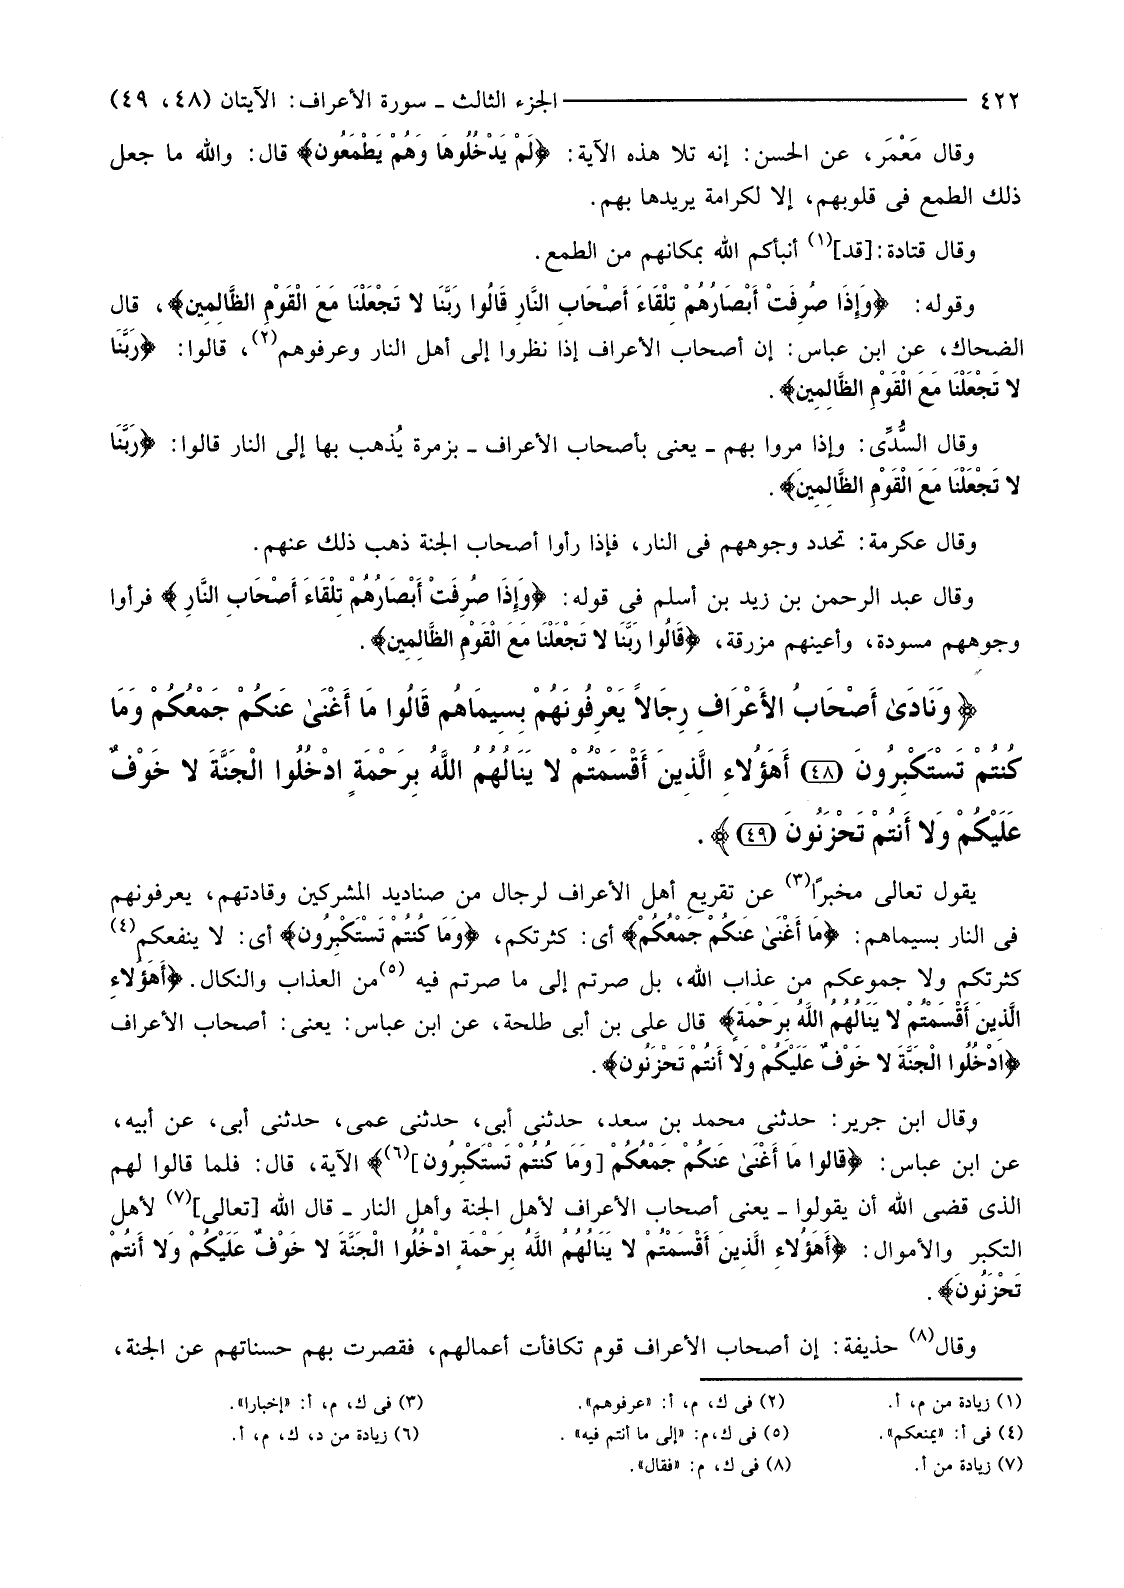 ٤٢٢ ــــــ الجزء الثالث ـ سورة الأعراف: الآيتان (٤٨، ٤٩)
وقال مَعْمَر، عن الحسن: إنه تلا هذه الآية: ﴿لَمْ يَدْخُلُوهَا وَهُمْ يَطْمَعُون﴾ قال: والله ما جعل
ذلك الطمع فى قلوبهم، إلا لكرامة يريدها بهم.
وقال قتادة: [قد](١) أنبأكم الله بمكانهم من الطمع.
وقوله: ﴿وَإِذَا صُرِفَتْ أَبْصَارُهُمْ تِلْقَاءَ أَصْحَابِ النَّارِ قَالُوا رَبَّنَا لا تَجْعَلْنَا مَعَ الْقَوْمِ الظَّالِمِين﴾، قال
الضحاك، عن ابن عباس: إن أصحاب الأعراف إذا نظروا إلى أهل النار وعرفوهم(٢)، قالوا: ﴿رَبَّنَا
لا تَجْعَلْنَا مَعَ الْقَوْمِ الظَّالِمِين﴾.
وقال السُّدِّى: وإذا مروا بهم ـ يعنى بأصحاب الأعراف ـ بزمرة يُذهب بها إلى النار قالوا: ﴿رَبَّنَا
لا تَجْعَلْنَا مَعَ الْقَوْمِ الظَّالِمِينَ﴾.
وقال عكرمة: تحدد وجوههم فى النار، فإذا رأوا أصحاب الجنة ذهب ذلك عنهم.
وقال عبد الرحمن بن زيد بن أسلم فى قوله: ﴿وَإِذَا صُرِفَتْ أَبْصَارُهُمْ تِلْقَاءَ أَصْحَابِ النَّارِ﴾ فرأوا
وجوههم مسودة، وأعينهم مزرقة، ﴿قَالُوا رَبَّنَا لا تَجْعَلْنَا مَعَ الْقَوْمِ الظَّالِمِين﴾.
﴿وَنَادَىٰ أَصْحَابُ الأَعْرَافِ رِجَالاً يَعْرِفُونَهُمْ بِسِيمَاهُمْ قَالُوا مَا أَغْنَىٰ عَنكُمْ جَمْعُكُمْ وَمَا
كُنتُمْ تَسْتَكْبِرُونَ (٤٨) أَهَؤُلاءِ الَّذِينَ أَقْسَمْتُمْ لا يَنَالُهُمُ اللَّهُ بِرَحْمَةٍ ادْخُلُوا الْجَنَّةَ لا خَوْفٌ
عَلَيْكُمْ وَلا أَنتُمْ تَحْزَنُونَ (٤٩)﴾.
يقول تعالى مخبرًا(٣) عن تقريع أهل الأعراف لرجال من صناديد المشركين وقادتهم، يعرفونهم
فى النار بسيماهم: ﴿مَا أَغْنَىٰ عَنكُمْ جَمْعُكُمْ﴾ أى: كثرتكم، ﴿وَمَا كُنتُمْ تَسْتَكْبِرُون﴾ أى: لا ينفعكم(٤)
كثرتكم ولا جموعكم من عذاب الله، بل صرتم إلى ما صرتم فيه (٥)من العذاب والنكال. ﴿أَهَؤُلاءِ
الَّذِينَ أَقْسَمْتُمْ لا يَنَالُهُمُ اللَّهُ بِرَحْمَةٍ﴾ قال على بن أبى طلحة، عن ابن عباس: يعنى: أصحاب الأعراف
﴿ادْخُلُوا الْجَنَّةَ لا خَوْفٌ عَلَيْكُمْ وَلا أَنتُمْ تَحْزَنُون﴾.
وقال ابن جرير: حدثنى محمد بن سعد، حدثنى أبى، حدثنى عمى، حدثنى أبى، عن أبيه،
عن ابن عباس: ﴿قالوا مَا أَغْنَىٰ عَنكُمْ جَمْعُكُمْ [وَمَا كُنتُمْ تَسْتَكْبِرُون](٦)﴾ الآية، قال: فلما قالوا لهم
الذى قضى الله أن يقولوا ـ يعنى أصحاب الأعراف لأهل الجنة وأهل النار ـ قال الله [تعالى](٧) لأهل
التكبر والأموال: ﴿أَهَؤُلاءِ الَّذِينَ أَقْسَمْتُمْ لا يَنَالُهُمُ اللَّهُ بِرَحْمَةٍ ادْخُلُوا الْجَنَّةَ لا خَوْفٌ عَلَيْكُمْ وَلا أَنتُمْ
تَحْزَنُونَ﴾.
وقال(٨) حذيفة: إن أصحاب الأعراف قوم تكافأت أعمالهم، فقصرت بهم حسناتهم عن الجنة،
(١) زيادة من م، أ. (٢) فى ك، م، أ: «عرفوهم». (٣) فى ك، م، أ: «إخبارا».
(٤) فى أ: «يمنعكم». (٥) فى ك،م: «إلى ما أنتم فيه». (٦) زيادة من د، ك، م، أ.
(٧) زيادة من أ. (٨) فى ك، م: «فقال».